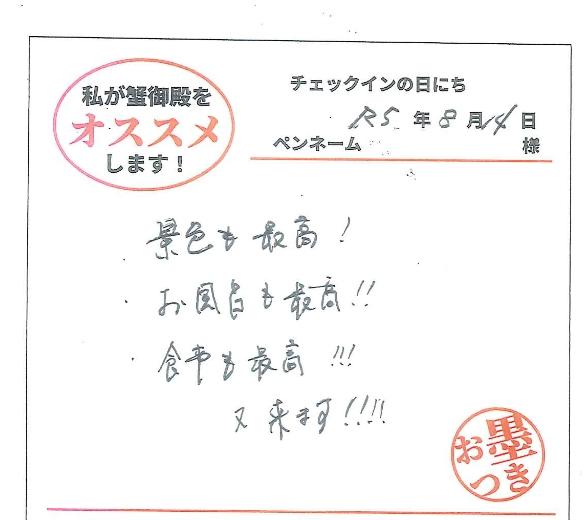 私が蟹御殿を
オススメ
します！
チェックインの日にち
R5 年 8 月 14 日
ペンネーム 様
景色も最高！
お風呂も最高!!
食事も最高!!!
又来ます!!!!
お墨
つき